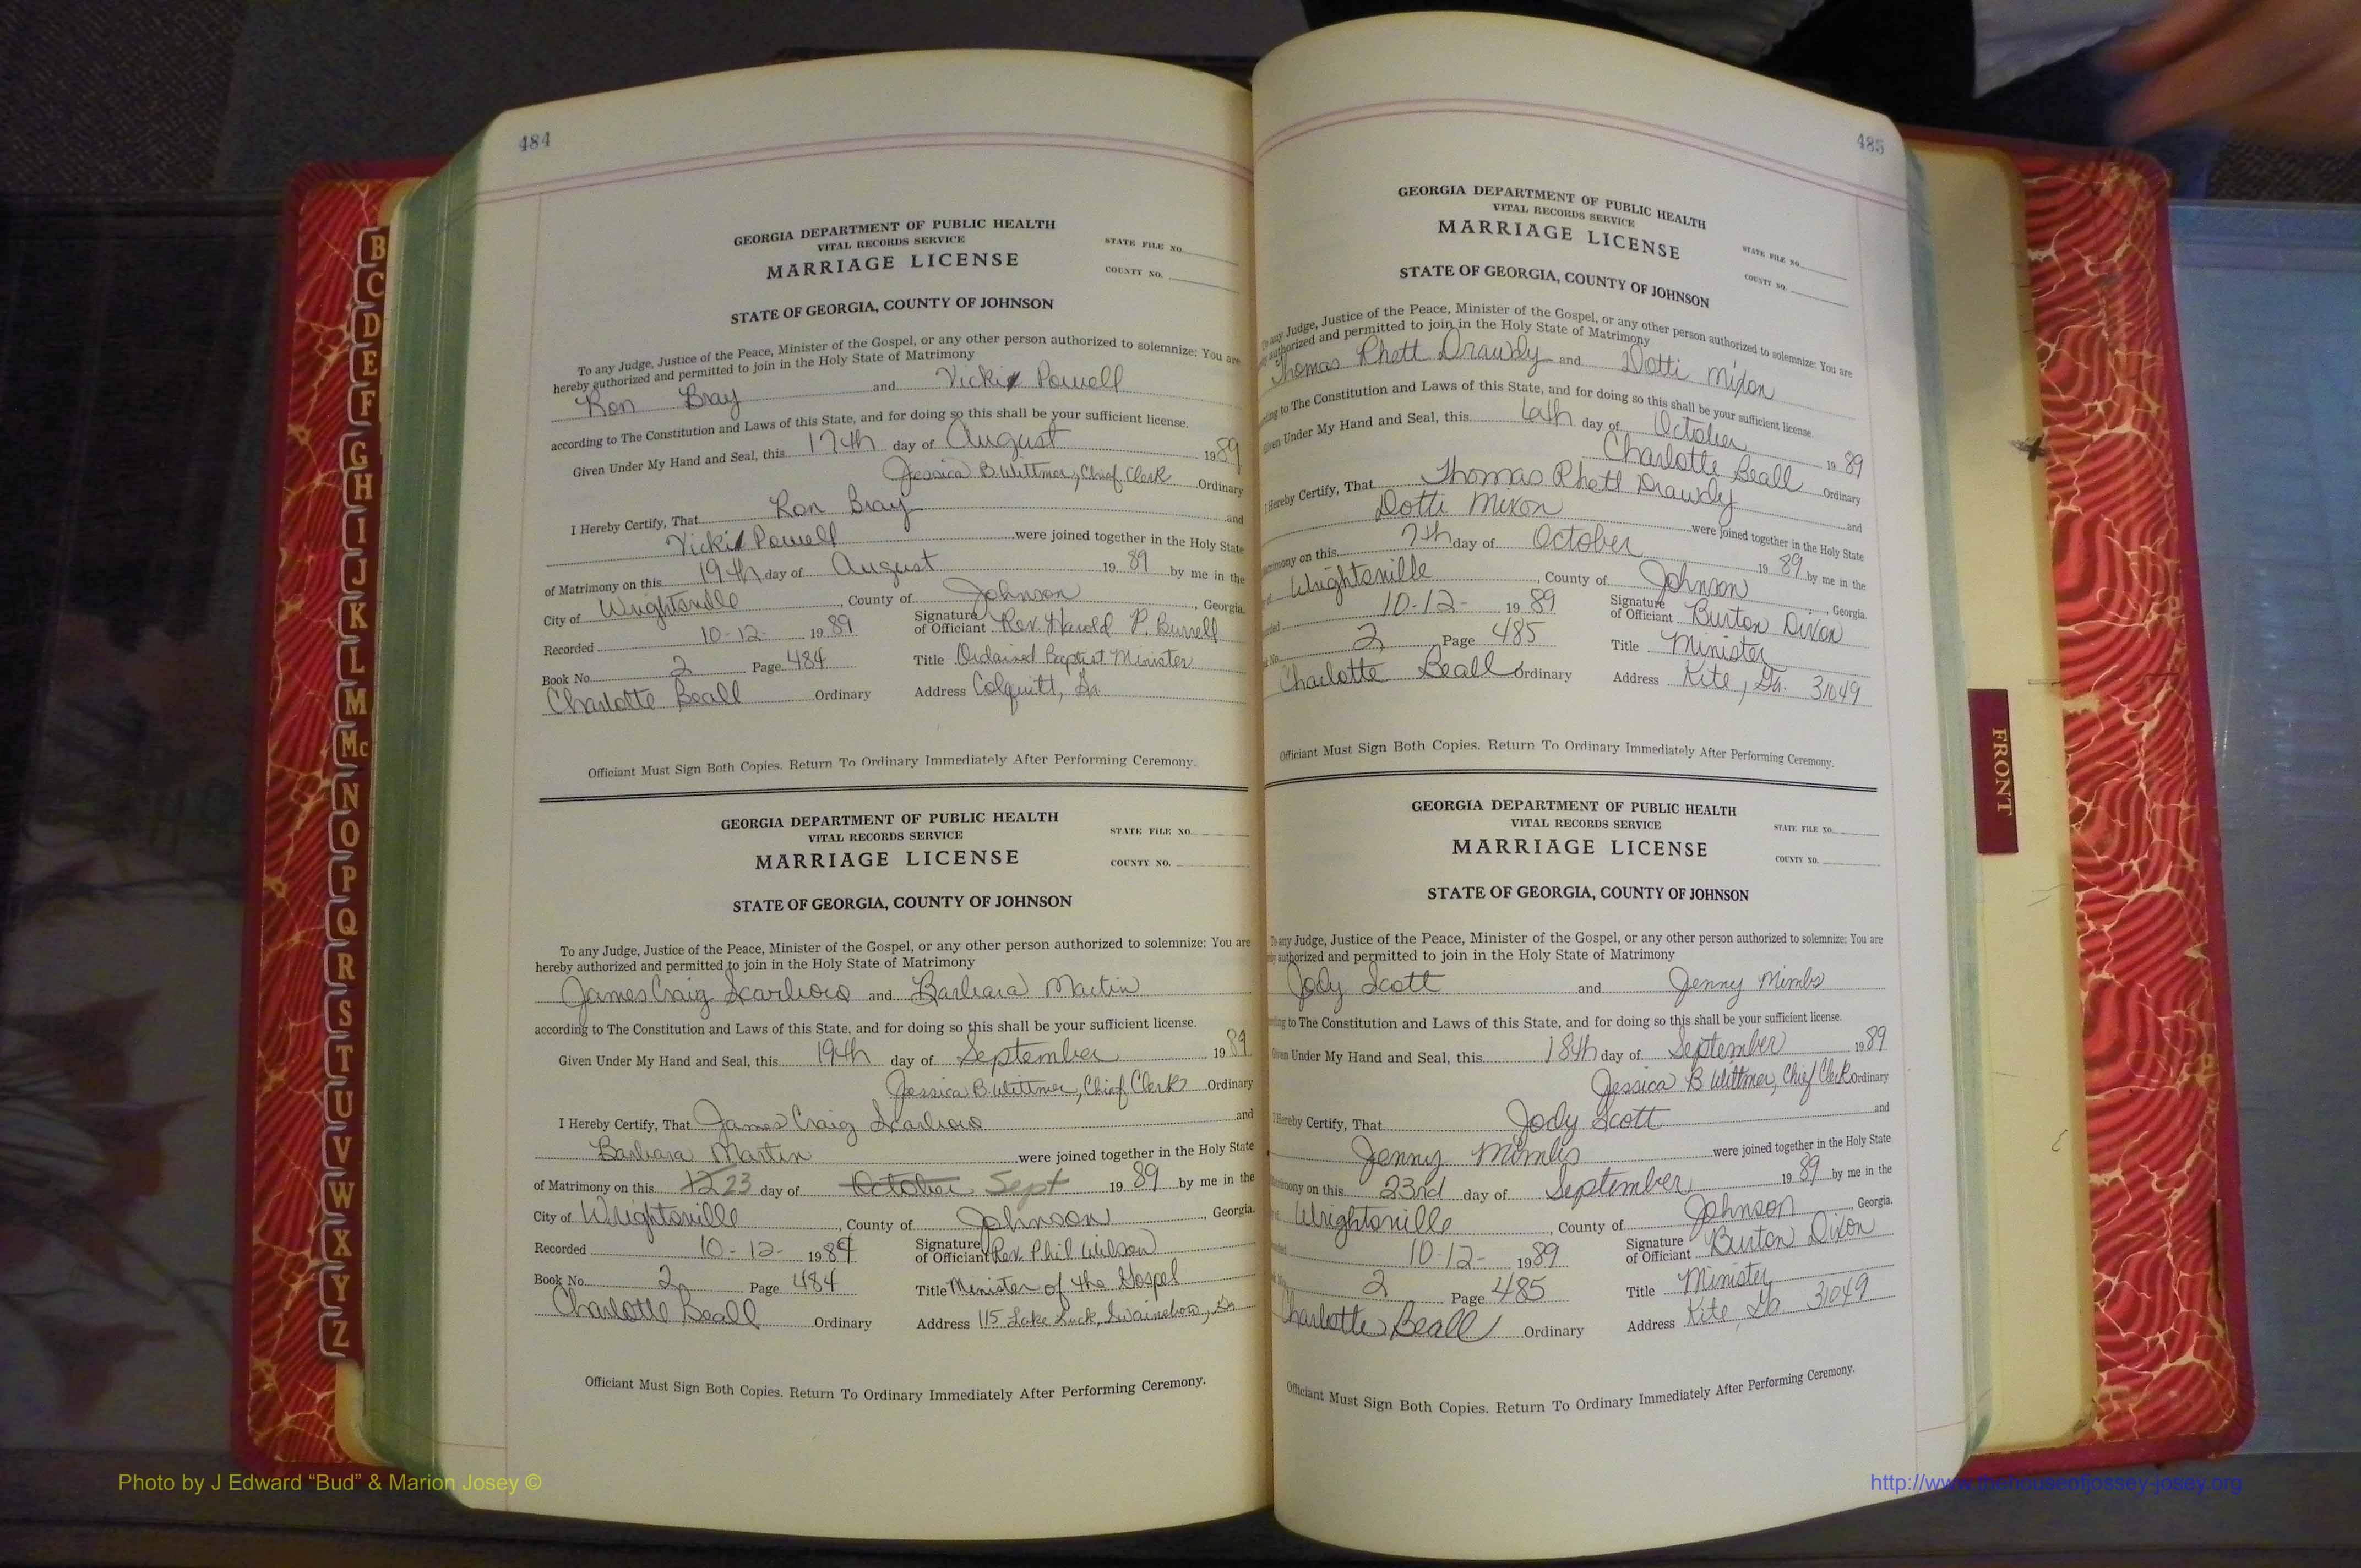 484
GEORGIA DEPARTMENT OF PUBLIC HEALTH
VITAL RECORDS SERVICE
MARRIAGE LICENSE
STATE FILE NO.
COUNTY NO.
STATE OF GEORGIA, COUNTY OF JOHNSON
To any Judge, Justice of the Peace, Minister of the Gospel, or any other person authorized to solemnize: You are
hereby authorized and permitted to join in the Holy State of Matrimony
Ron Bray and Vicki Powell
according to The Constitution and Laws of this State, and for doing so this shall be your sufficient license.
Given Under My Hand and Seal, this 17th day of August 1989
Jessica B. Wittmer, Chief Clerk Ordinary
I Hereby Certify, That Ron Bray and
Vicki Powell were joined together in the Holy State
of Matrimony on this 19th day of August 1989 by me in the
City of Wrightsville, County of Johnson, Georgia.
Recorded 10-12- 1989 Signature of Officiant Rev. Harold P. Burrell
Book No. 2 Page 484 Title Ordained Baptist Minister
Charlotte Beall Ordinary Address Colquitt, Ga
Officiant Must Sign Both Copies. Return To Ordinary Immediately After Performing Ceremony.
GEORGIA DEPARTMENT OF PUBLIC HEALTH
VITAL RECORDS SERVICE
MARRIAGE LICENSE
STATE FILE NO.
COUNTY NO.
STATE OF GEORGIA, COUNTY OF JOHNSON
To any Judge, Justice of the Peace, Minister of the Gospel, or any other person authorized to solemnize: You are
hereby authorized and permitted to join in the Holy State of Matrimony
James Craig Scarboro and Barbara Martin
according to The Constitution and Laws of this State, and for doing so this shall be your sufficient license.
Given Under My Hand and Seal, this 19th day of September 1989
Jessica B. Wittmer, Chief Clerk Ordinary
I Hereby Certify, That James Craig Scarboro and
Barbara Martin were joined together in the Holy State
of Matrimony on this 23 day of October Sept 1989 by me in the
City of Wrightsville, County of Johnson, Georgia.
Recorded 10-12- 1989 Signature of Officiant Rev. Phil Wilson
Book No. 2 Page 484 Title Minister of the Gospel
Charlotte Beall Ordinary Address 115 Lake Luck, Swainsboro, Ga
Officiant Must Sign Both Copies. Return To Ordinary Immediately After Performing Ceremony.
485
GEORGIA DEPARTMENT OF PUBLIC HEALTH
VITAL RECORDS SERVICE
MARRIAGE LICENSE
STATE FILE NO.
COUNTY NO.
STATE OF GEORGIA, COUNTY OF JOHNSON
To any Judge, Justice of the Peace, Minister of the Gospel, or any other person authorized to solemnize: You are
authorized and permitted to join in the Holy State of Matrimony
Thomas Rhett Drawdy and Dotti Mixon
to The Constitution and Laws of this State, and for doing so this shall be your sufficient license.
Given Under My Hand and Seal, this 6th day of October 1989
Charlotte Beall Ordinary
I Hereby Certify, That Thomas Rhett Drawdy and
Dotti Mixon were joined together in the Holy State
on this 7th day of October 1989 by me in the
Wrightsville, County of Johnson, Georgia.
10-12- 1989 Signature of Officiant Burton Dixon
2 Page 485 Title Minister
Charlotte Beall Ordinary Address Kite, Ga. 31049
Officiant Must Sign Both Copies. Return To Ordinary Immediately After Performing Ceremony.
GEORGIA DEPARTMENT OF PUBLIC HEALTH
VITAL RECORDS SERVICE
MARRIAGE LICENSE
STATE FILE NO.
COUNTY NO.
STATE OF GEORGIA, COUNTY OF JOHNSON
To any Judge, Justice of the Peace, Minister of the Gospel, or any other person authorized to solemnize: You are
authorized and permitted to join in the Holy State of Matrimony
Jody Scott and Jenny Mimbs
to The Constitution and Laws of this State, and for doing so this shall be your sufficient license.
Given Under My Hand and Seal, this 18th day of September 1989
Jessica B Wittmer, Chief Clerk Ordinary
I Hereby Certify, That Jody Scott and
Jenny Mimbs were joined together in the Holy State
on this 23rd day of September 1989 by me in the
Wrightsville, County of Johnson, Georgia.
10-12- 1989 Signature of Officiant Burton Dixon
2 Page 485 Title Minister
Charlotte Beall Ordinary Address Kite, Ga. 31049
Officiant Must Sign Both Copies. Return To Ordinary Immediately After Performing Ceremony.
B
C
D
E
F
G
H
I
J
K
L
M
Mc
N
O
P
Q
R
S
T
U
V
W
X
Y
Z
FRONT
Photo by J Edward “Bud” & Marion Josey ©
http://www.thehouseofjossey-josey.org